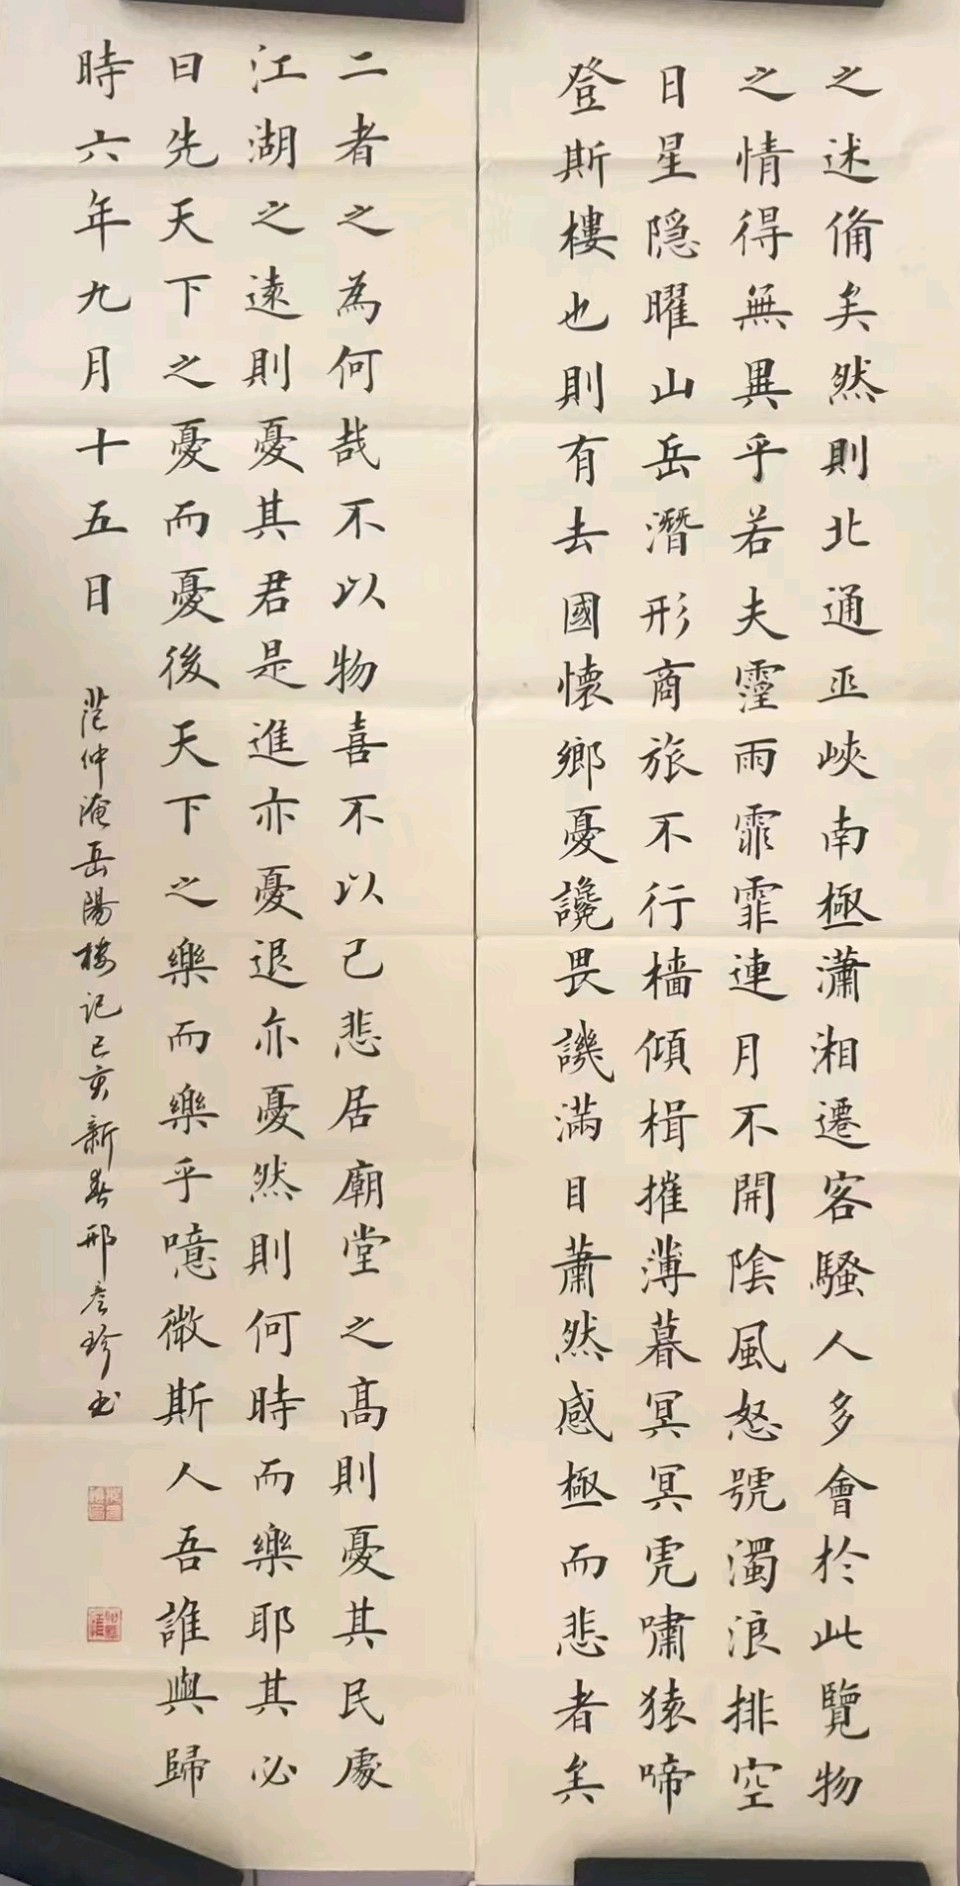 之述俻矣然則北通巫峽南極瀟湘遷客騷人多會於此覽物
之情得無異乎若夫霪雨霏霏連月不開陰風怒號濁浪排空
日星隱曜山岳潛形商旅不行檣傾楫摧薄暮冥冥虎嘯猿啼
登斯樓也則有去國懷鄉憂讒畏譏滿目蕭然感極而悲者矣
二者之為何哉不以物喜不以己悲居廟堂之高則憂其民處
江湖之遠則憂其君是進亦憂退亦憂然則何時而樂耶其必
曰先天下之憂而憂後天下之樂而樂乎噫微斯人吾誰與歸
時六年九月十五日
范仲淹岳陽樓記己亥新春邢彥珍书